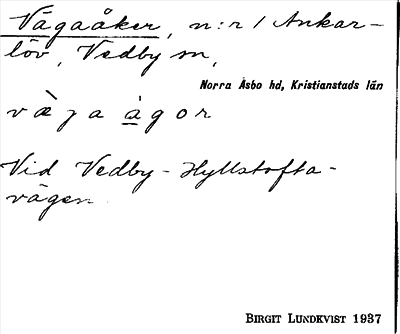 Vägaåker, n:r 1 Ankar-
löv, Vedby sn,
Norra Åsbo hd, Kristianstads län
Vid Vedby-Hyllstofta-
vägen.
BIRGIT LUNDKVIST 1937